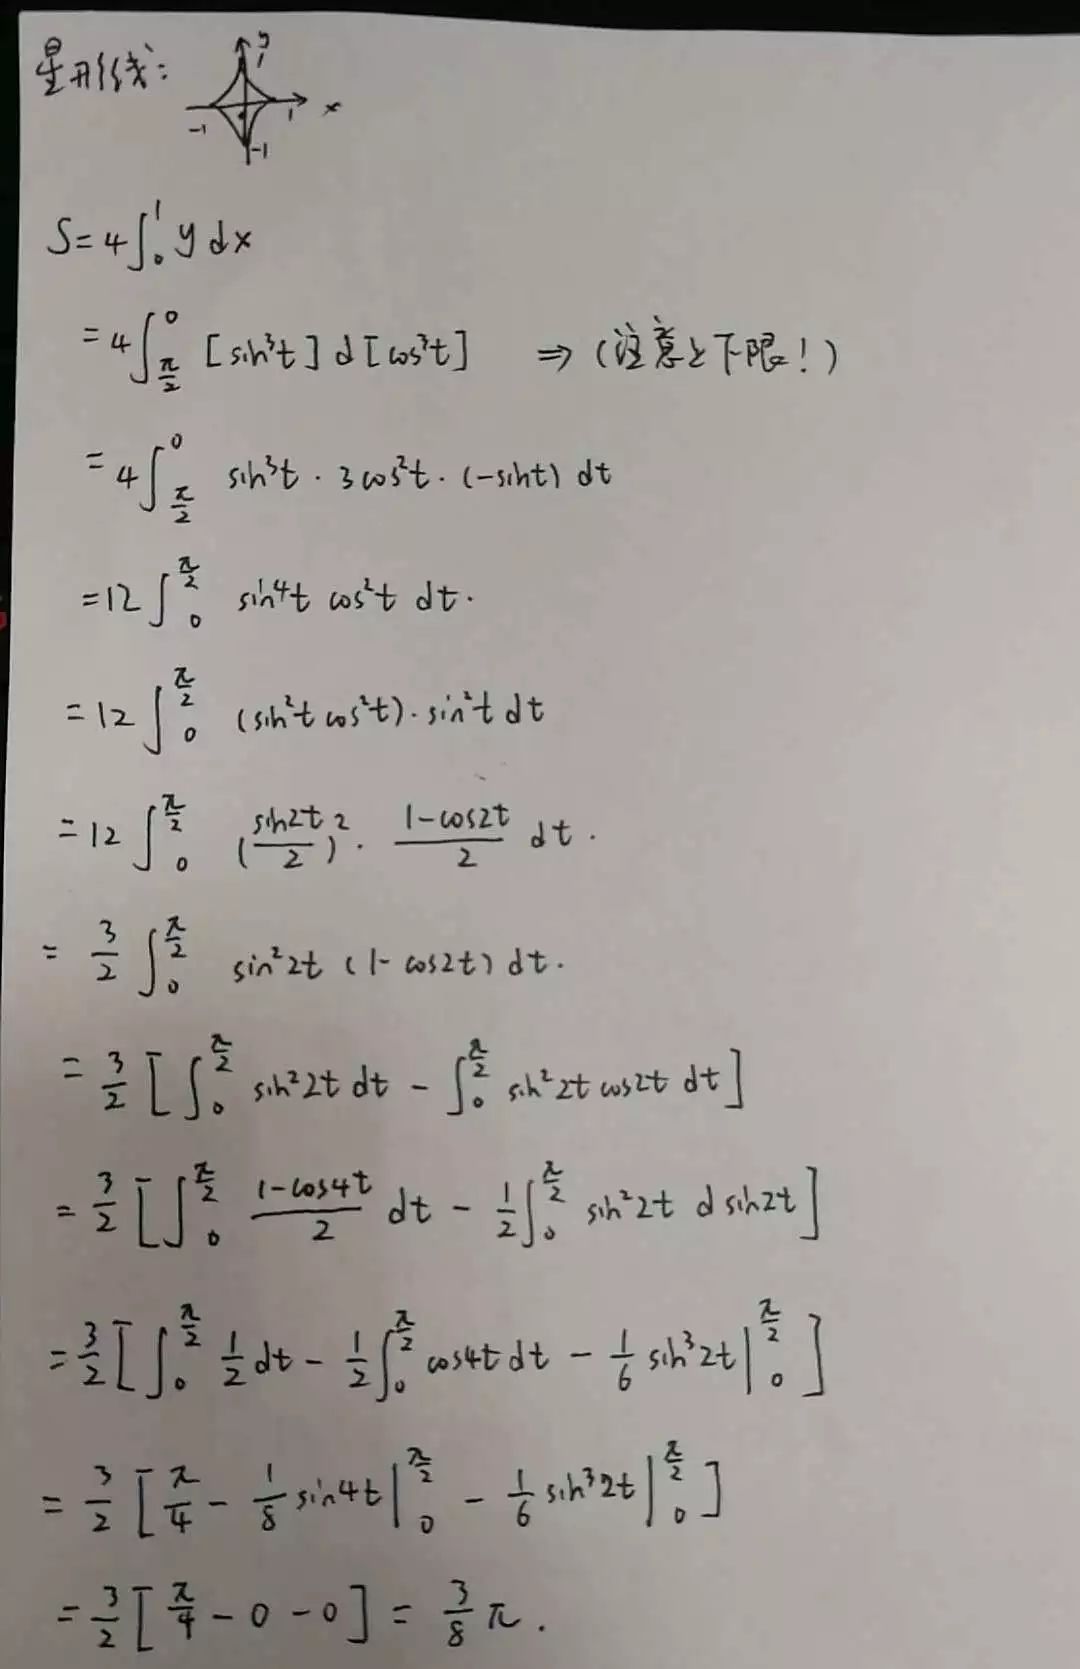 星形线:
y
1
-1 1 x
-1
S=4∫₀¹ y dx
=4∫_{π/2}^{0} [sin³t] d[cos³t] ⇒ (注意上下限!)
=4∫_{π/2}^{0} sin³t · 3cos²t · (-sint) dt
=12∫_{0}^{π/2} sin⁴t cos²t dt.
=12∫_{0}^{π/2} (sin²t cos²t) · sin²t dt
=12∫_{0}^{π/2} (sin2t/2)² · (1-cos2t)/2 dt.
= 3/2 ∫_{0}^{π/2} sin²2t (1-cos2t) dt.
= 3/2 [∫_{0}^{π/2} sin²2t dt - ∫_{0}^{π/2} sin²2t cos2t dt]
= 3/2 [∫_{0}^{π/2} (1-cos4t)/2 dt - 1/2 ∫_{0}^{π/2} sin²2t d sin2t]
= 3/2 [∫_{0}^{π/2} 1/2 dt - 1/2 ∫_{0}^{π/2} cos4t dt - 1/6 sin³2t |_{0}^{π/2}]
= 3/2 [π/4 - 1/8 sin4t |_{0}^{π/2} - 1/6 sin³2t |_{0}^{π/2}]
= 3/2 [π/4 - 0 - 0] = 3/8 π.